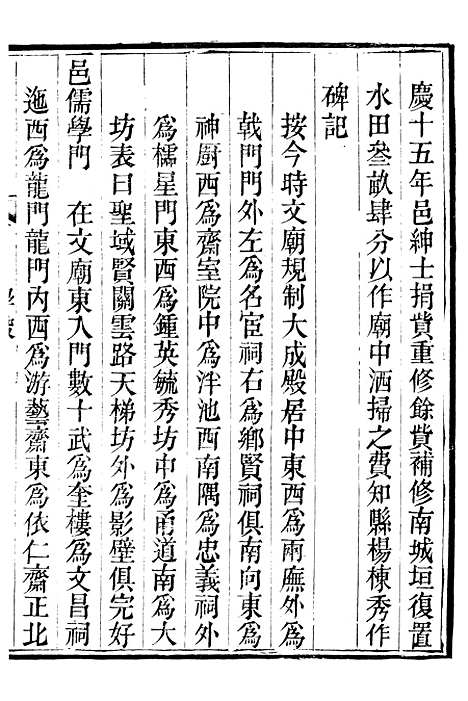 慶十五年邑紳士捐貲重修餘貲補修南城垣復置
水田叄畝肆分以作廟中洒掃之費知縣楊棟秀作
碑記
按今時文廟規制大成殿居中東西爲兩廡外爲
戟門門外左爲名宦祠右爲鄉賢祠俱南向東爲
神厨西爲齋室院中爲泮池西南隅爲忠義祠外
爲櫺星門東西爲鍾英毓秀坊中爲甬道南爲大
坊表曰聖域賢關雲路天梯坊外爲影壁俱完好
邑儒學門　在文廟東入門數十武爲奎樓爲文昌祠
迤西爲龍門龍門内西爲游藝齋東爲依仁齋正北